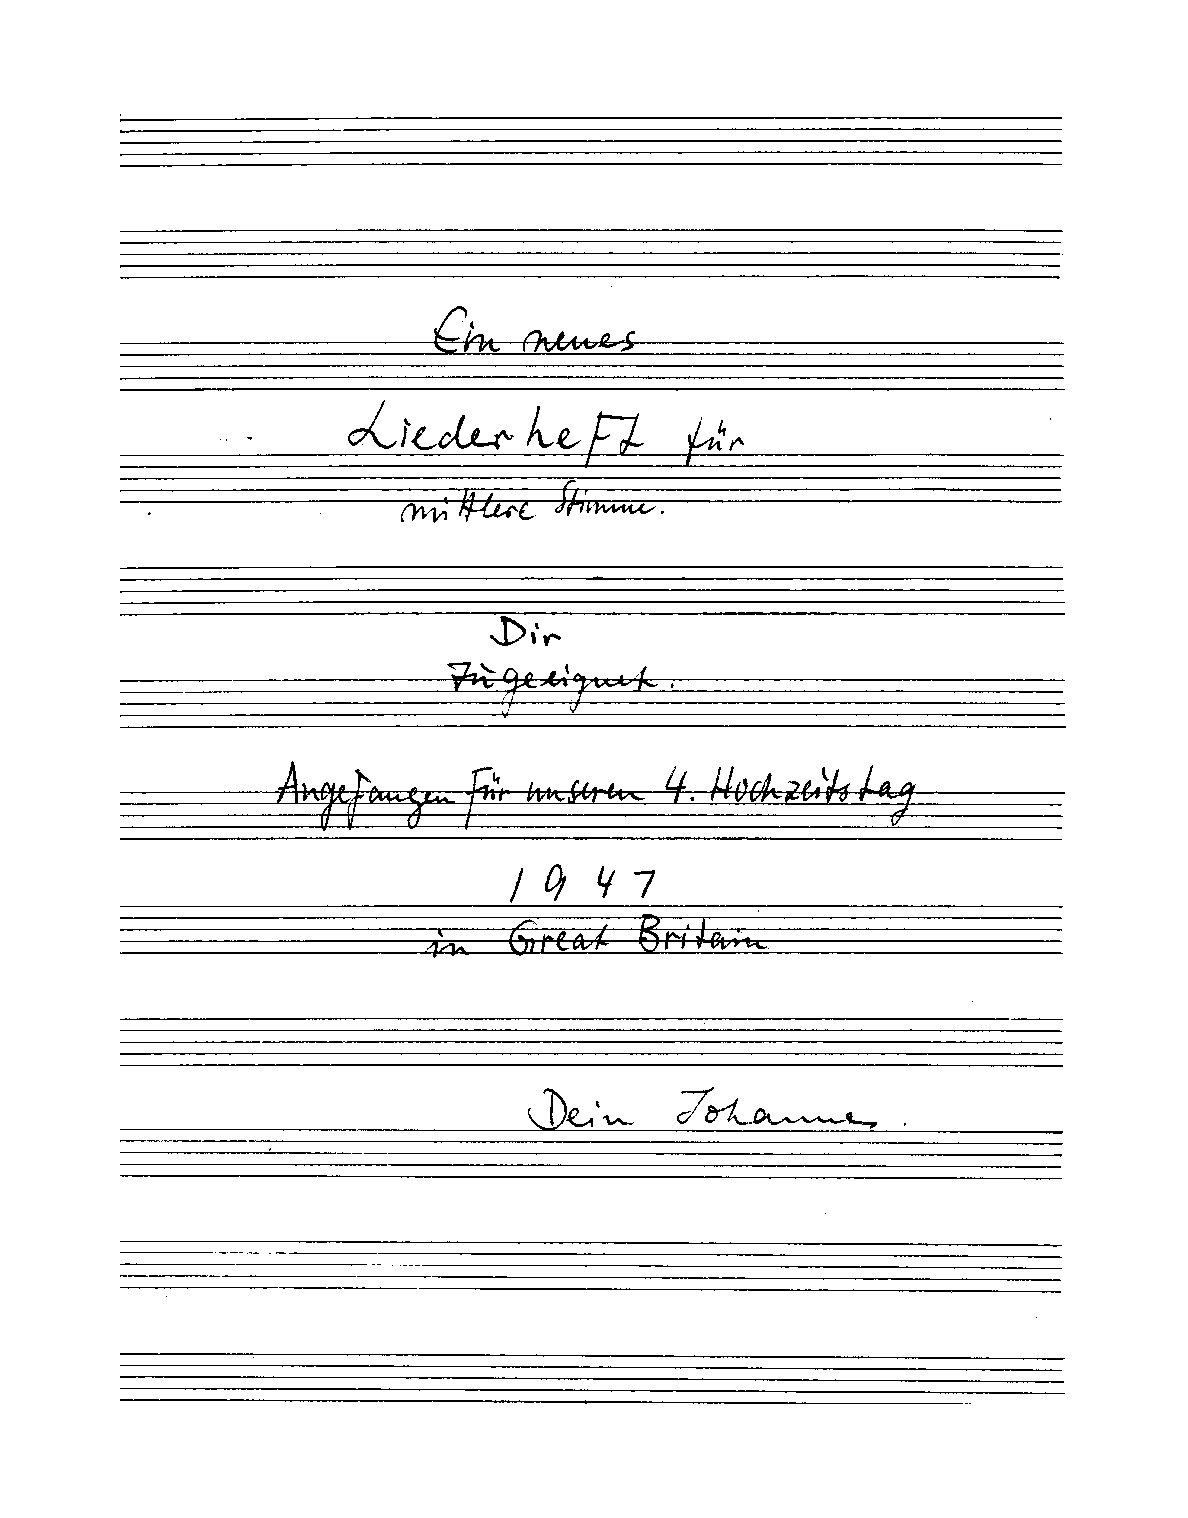 Ein neues
Liederheft für
mittlere Stimme.
Dir
zugeeignet.
Angefangen für unseren 4. Hochzeitstag
1947
in Great Britain
Dein Johannes.